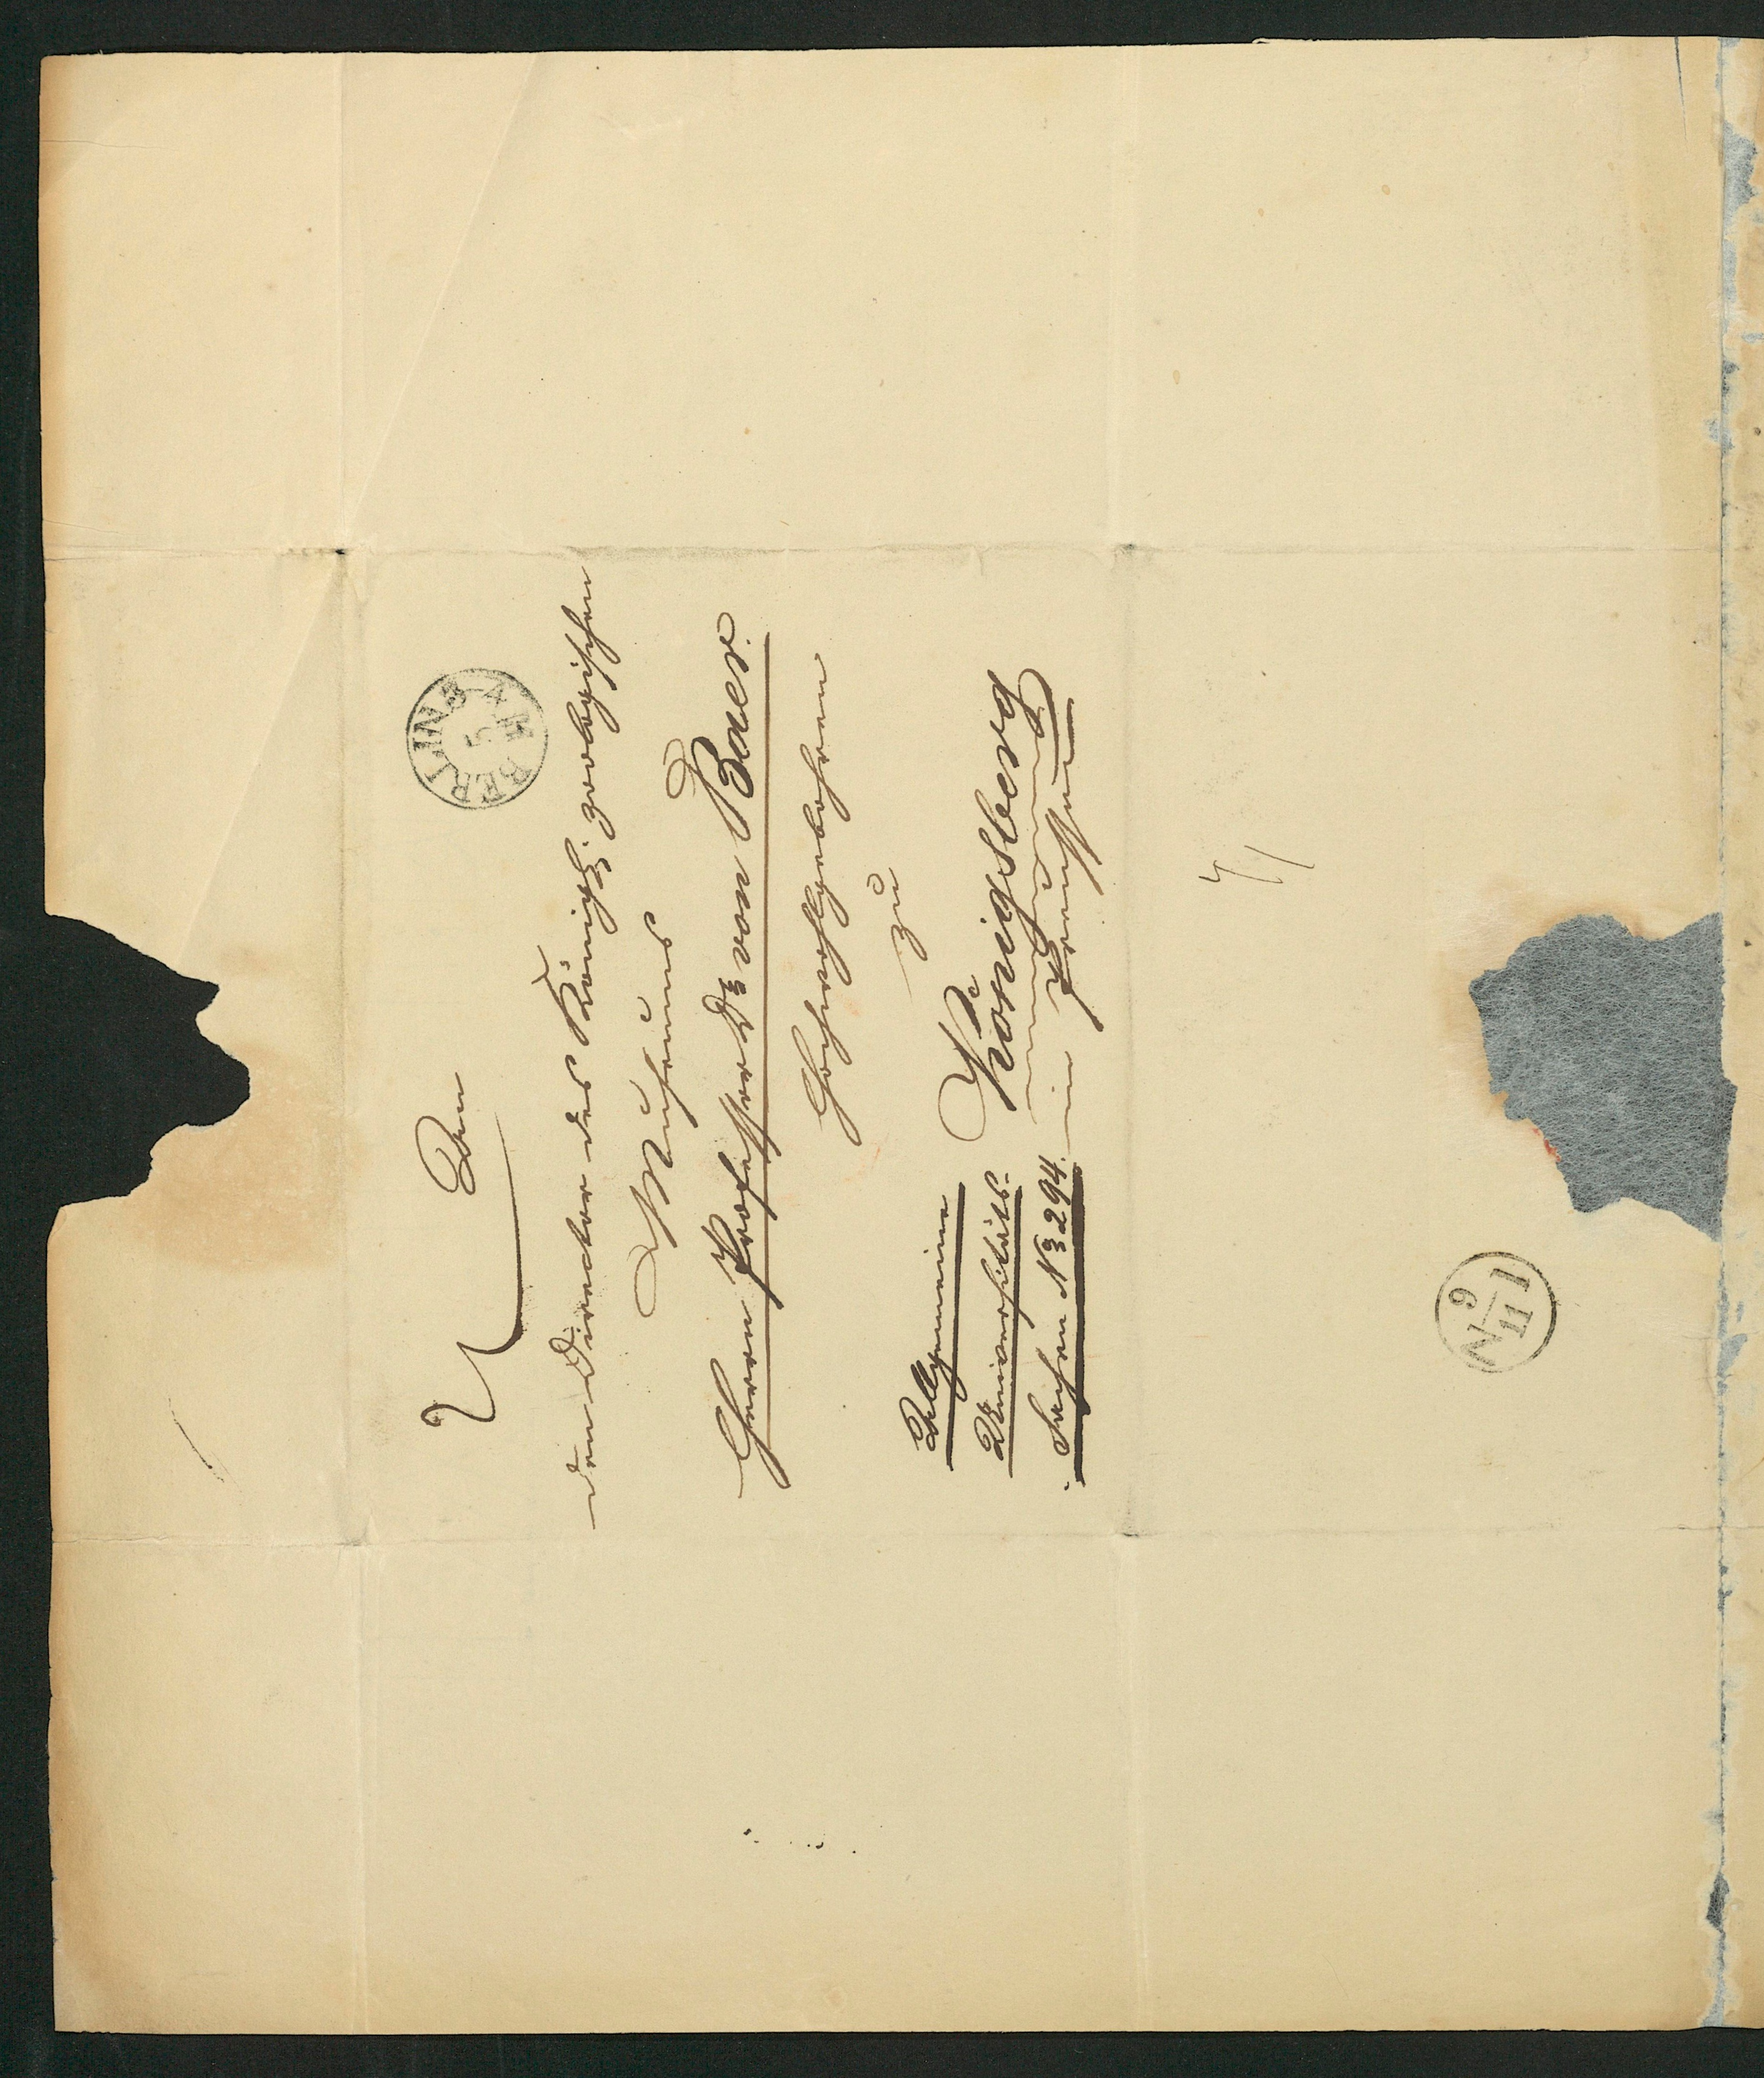 An
den Director des Königl. zoologischen
Museums
Herrn Professor Dr von Baer.
Hochwohlgebohren
zu
Königsberg
in Preussen
Allgemeine
Universitäts-
Sachen No 294.
BERLIN
N 9
11 1